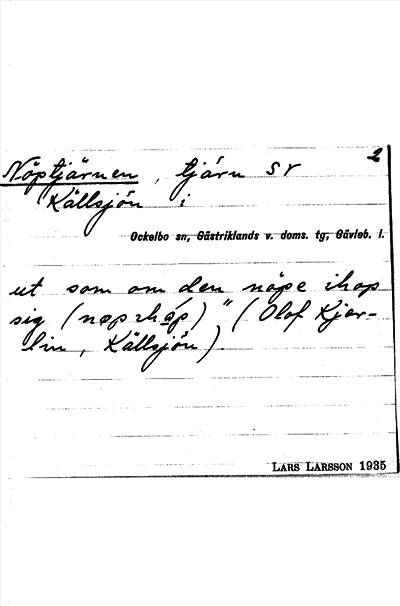 2
Nöptjärnen, tjärn SV
Källsjön i
Ockelbo sn, Gästriklands v. doms. tg, Gävleb. l.
ut som om den nöpe ihop
sig (nøp ihóp)" (Olof Kjer-
lin, Källsjön).
LARS LARSSON 1935